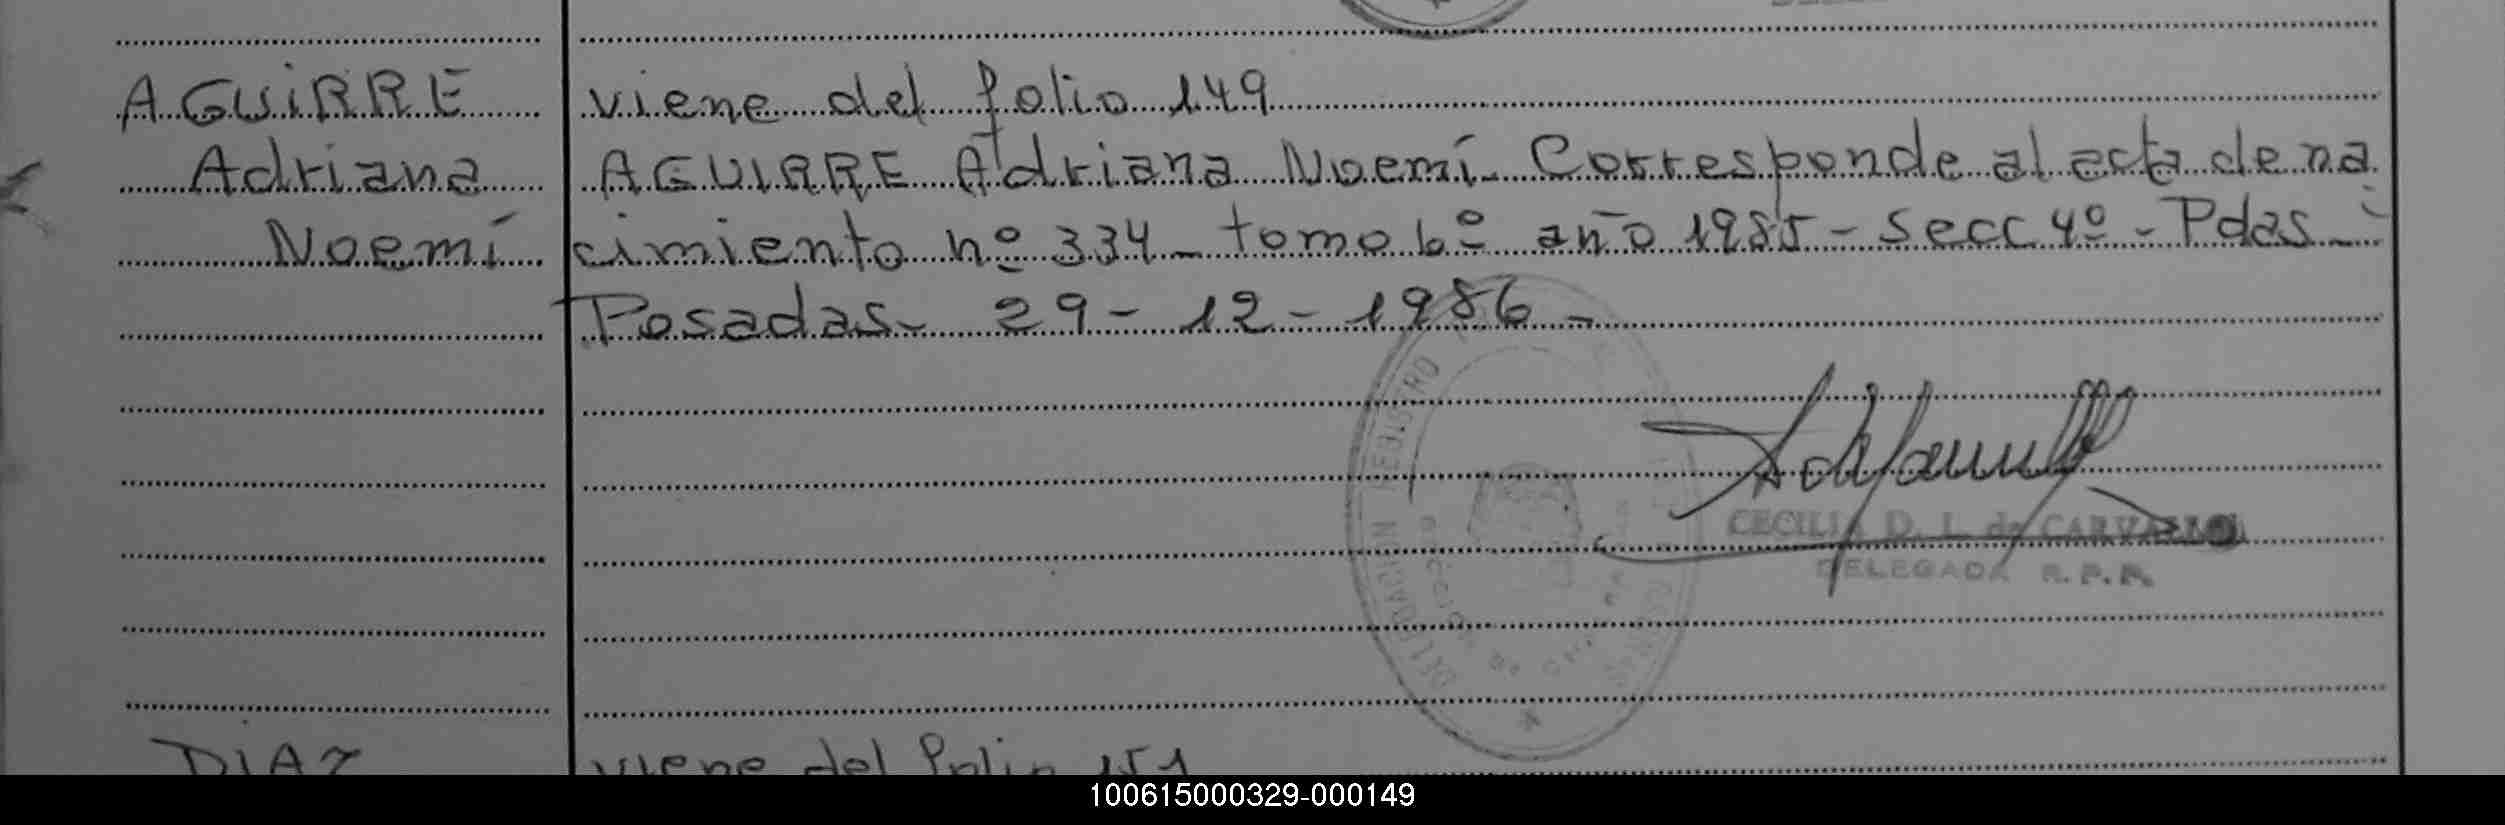 AGUIRRE viene del folio 149
Adriana AGUIRRE Adriana Noemí - Corresponde al acta de na
Noemí cimiento nº 334 - tomo 6º año 1985 - secc 4º - Pdas -
Posadas - 29 - 12 - 1986 -
DELEGACION REGISTRO
CECILIA D. L. de CARVALLO
DELEGADA R. P. P.
DIAZ viene del folio 151
100615000329-000149